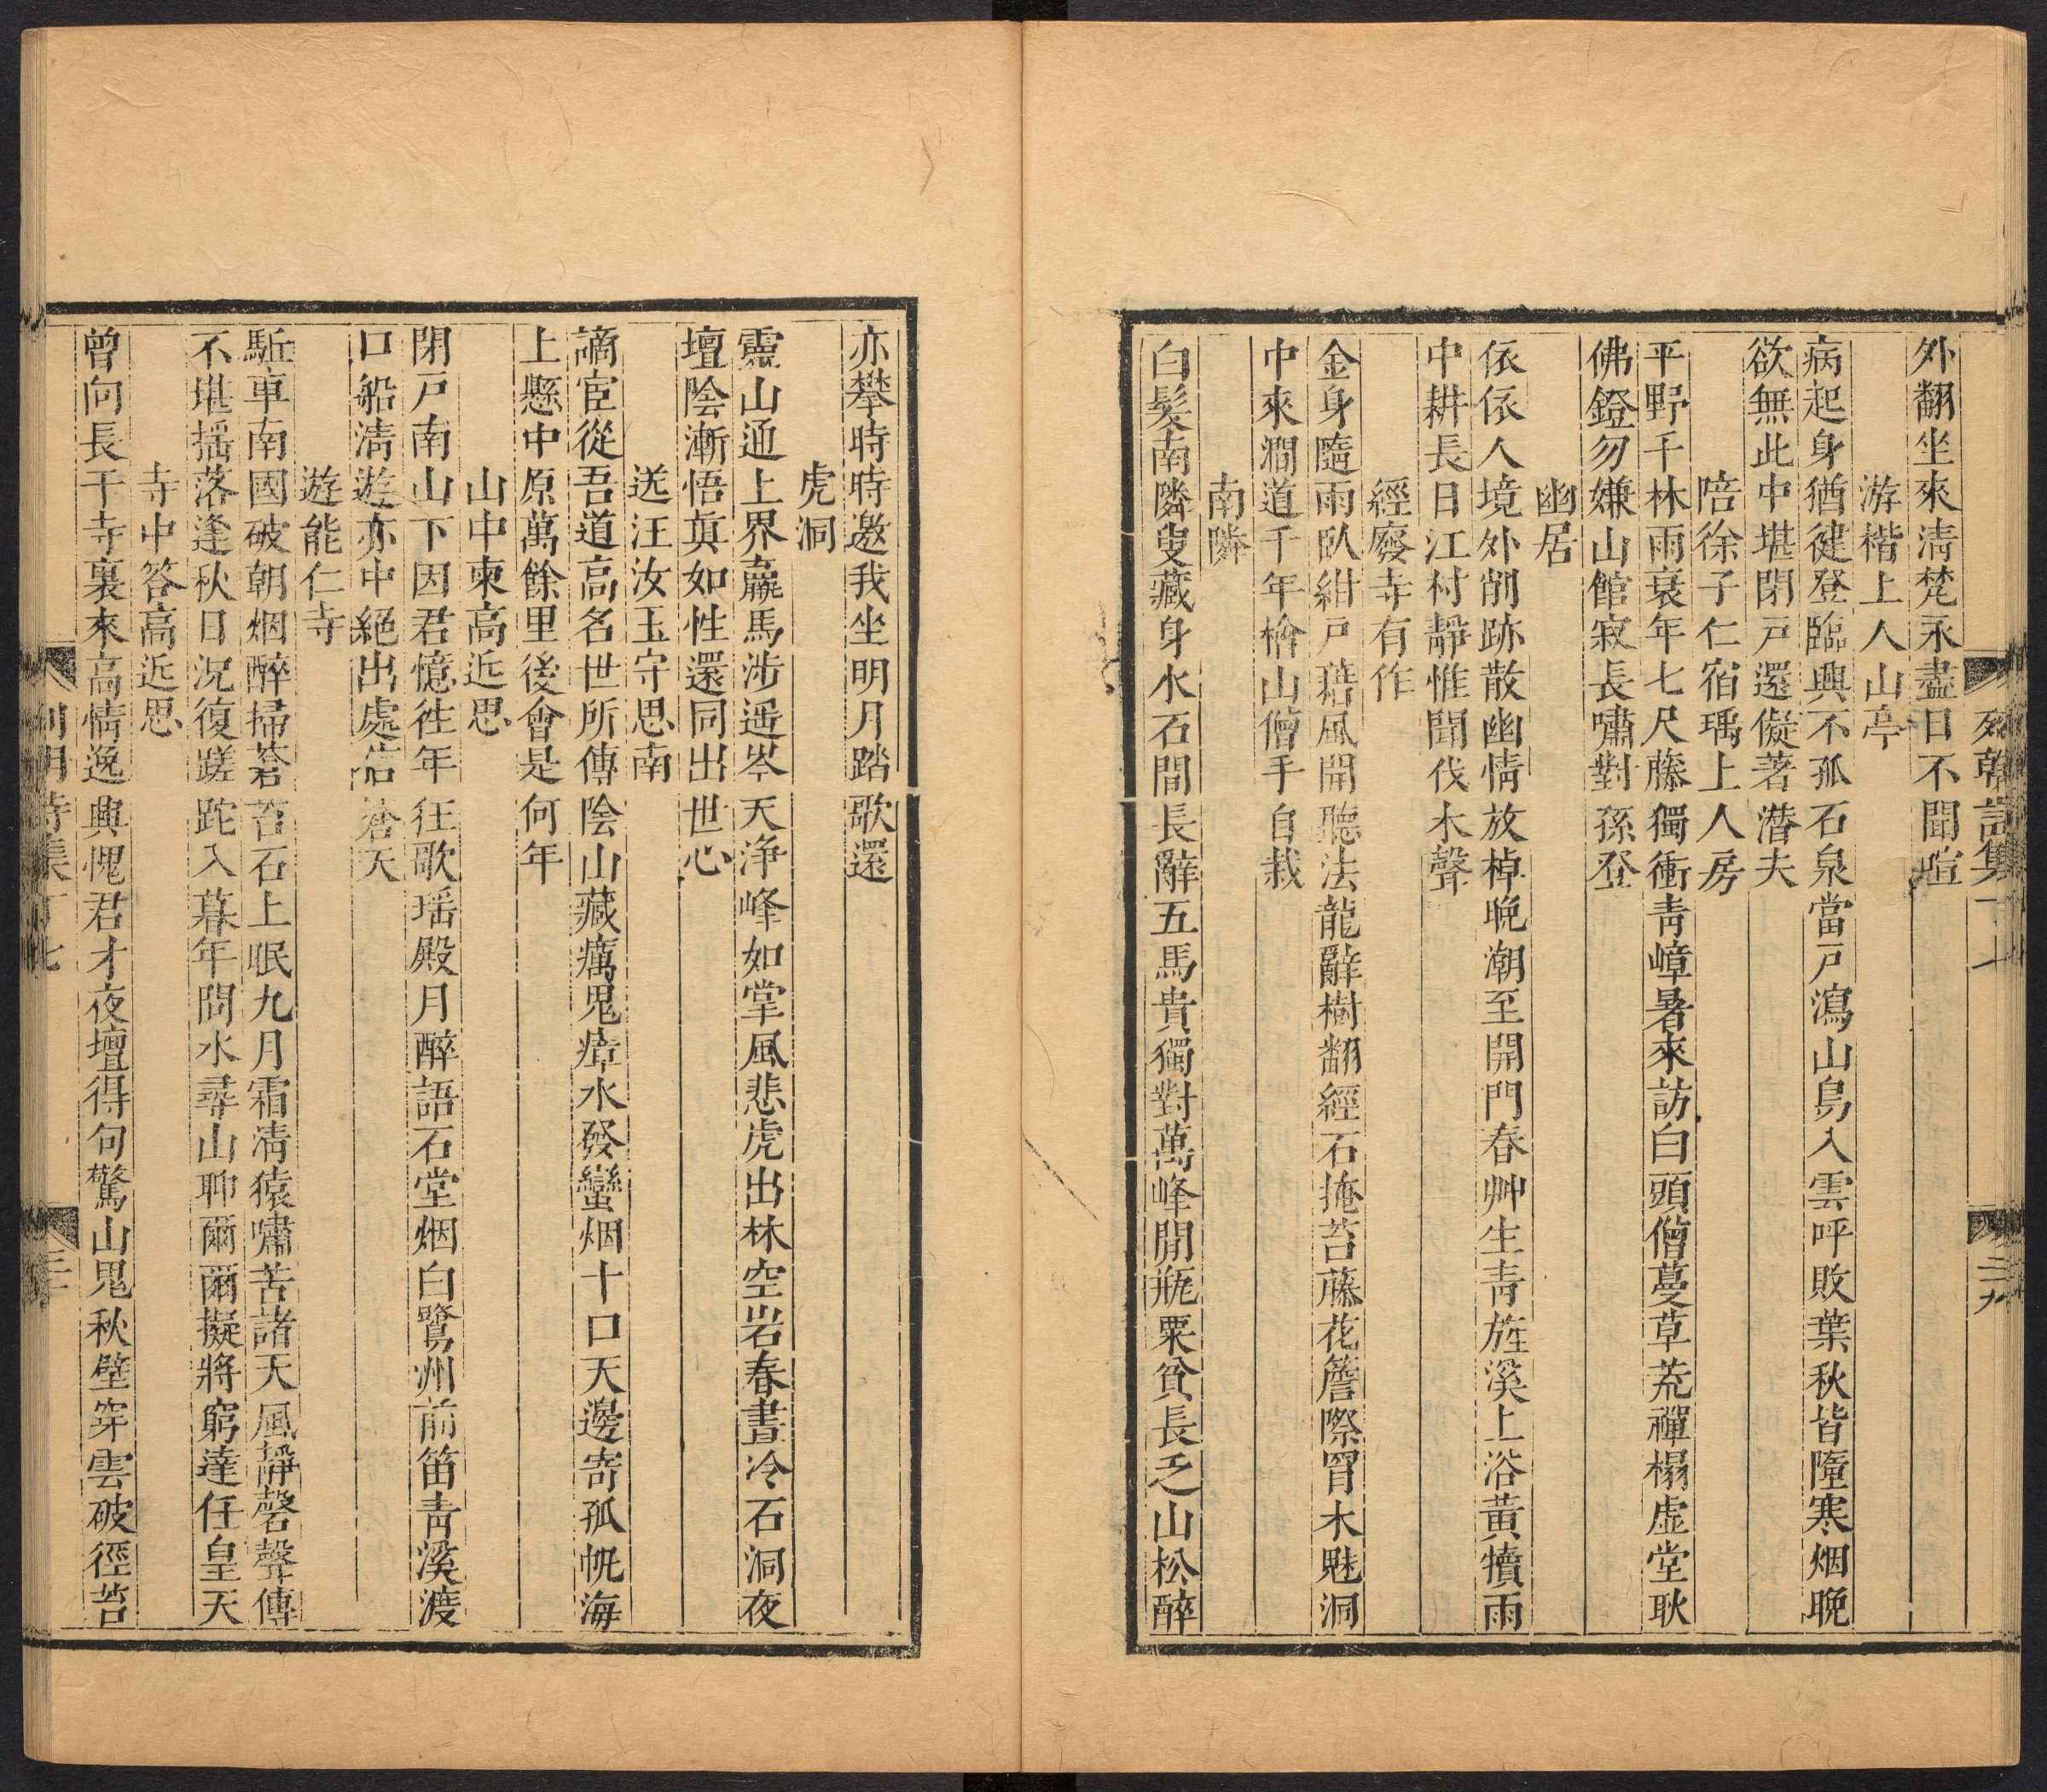 列朝詩集 丁七 三九
外翻坐來清梵永盡日不聞喧
游楷上人山亭
病起身猶健登臨興不孤石泉當戶瀉山鳥入雲呼敗葉秋皆隨寒烟晚
欲無此中堪閉戶還儗著潛夫
陪徐子仁宿瑀上人房
平野千林雨衰年七尺藤獨衝青嶂暑來訪白頭僧蔓草荒禪榻虛堂耿
佛鐙勿嫌山館寂長嘯對孫登
幽居
依依人境外削跡散幽情放棹晚潮至開門春艸生青旌溪上浴黃犢雨
中耕長日江村靜惟聞伐木聲
經廢寺有作
金身隨雨臥紺戶藉風開聽法龍辭樹翻經石掩苔藤花簷際罥木魅洞
中來澗道千年檜山僧手自栽
南隣
白髮南隣叟藏身水石間長辭五馬貴獨對萬峰閒瓶粟貧長乏山松醉
亦攀時時邀我坐明月踏歌還
虎洞
靈山通上界羸馬涉遥岑天淨峰如掌風悲虎出林空岩春晝冷石洞夜
壇陰漸悟真如性還同出世心
送汪汝玉守思南
謫宦從吾道高名世所傳陰山藏癘鬼瘴水發蠻烟十口天邊寄孤帆海
上懸中原萬餘里後會是何年
山中柬高近思
閉戶南山下因君憶往年狂歌瑶殿月醉語石堂烟白鷺州前笛青溪渡
口船清遊亦中絕出處占蒼天
遊能仁寺
駈車南國破朝烟醉掃莓苔石上眠九月霜清猿嘯苦諸天風靜磬聲傳
不堪搖落逢秋日況復蹉跎入暮年問水尋山聊爾爾擬將窮達任皇天
寺中答高近思
曾向長干寺裏來高情逸興愧君才夜壇得句驚山鬼秋壁穿雲破徑苔
列朝詩集 丁七